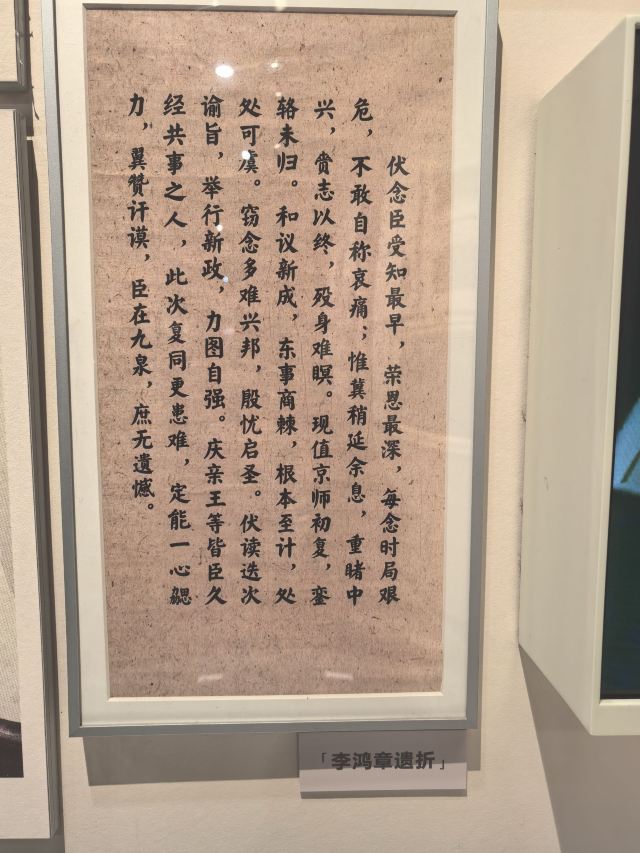 伏念臣受知最早，荣恩最深，每念时局艰
危，不敢自称哀痛；惟冀稍延余息，重睹中
兴，赍志以终，殁身难瞑。现值京师初复，銮
辂未归。和议新成，东事商棘，根本至计，处
处可虞。窃念多难兴邦，殷忧启圣。伏读迭次
谕旨，举行新政，力图自强。庆亲王等皆臣久
经共事之人，此次复同更患难，定能一心勰
力，翼赞讦谟，臣在九泉，庶无遗憾。
「李鸿章遗折」